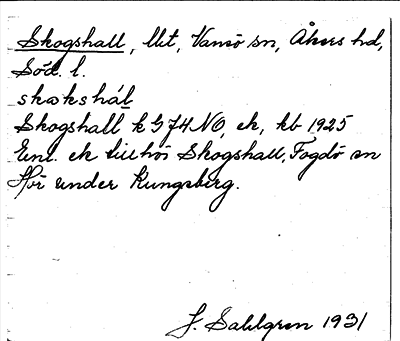 Skogshall, llbt, Vansö sn, Åkers hd,
Söd. l.
skokshál
Skogshall k G 74 NO, ek, kb 1925
Enl. ek tillhör Skogshall, Fogdö sn
Hör under Kungsberg.
J. Sahlgren 1931